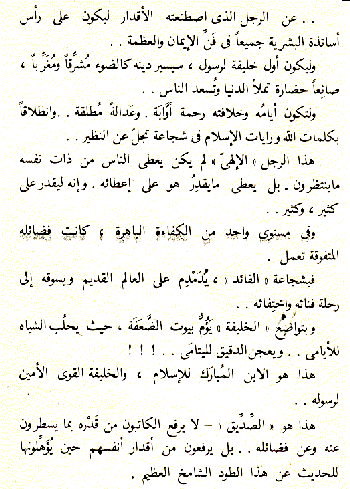 . . عن الرجل الذى اصطنعته الأقدار ليكون على رأس
أساتذة البشرية جميعاً فى فَنِّ الإيمان والعظمة . .
وليكون أول خليفة لرسول ، سيسير دينه كالضوء مُشرِّقاً ومُغَرِّباً ،
صانعاً حضارة تملأ الدنيا وتُسعد الناس . .
ولتكون أيامُه وخلافته رحمة أوَّابَة . وعدالةً مُطلقة . . وانطلاقاً
بكلمات الله ورايات الإسلام فى شجاعة تجلّ عن النظير . .
هذا الرجل « الإلهىّ » لم يكن يعطى الناس من ذات نفسه
ماينتظرون . بل يعطى مايقدِرُ هو على إعطائه . وإنه ليقدر على
كثير ، وكثير . .
وفى مستوي واحد من الكفاءة الباهرة ؛ كانت فضائله
المتفوقة تعمل .
فبشجاعة « القائد » ، يُدَمْدِم على العالم القديم ويسوقه إلى
رحلة فنائه واختفائه . .
وبتواضُع « الخليفة » يَؤُمُّ بيوت الضَّعَفَة ، حيث يحلُب الشياه
للأيامى . . ويعجن الدقيق لليتامَى . . ! ! !
هذا هو الابن المُبارَك للإسلام ، والخليفة القوى الأمين
لرسوله . .
هذا هو « الصِّدِّيق » - لا يرفع الكاتبون من قَدْره بما يسطرون
عنه وعن فضائله . . بل يرفعون من أقدار أنفسهم حين يُؤَهِّلونها
للحديث عن هذا الطود الشامخ العظيم .